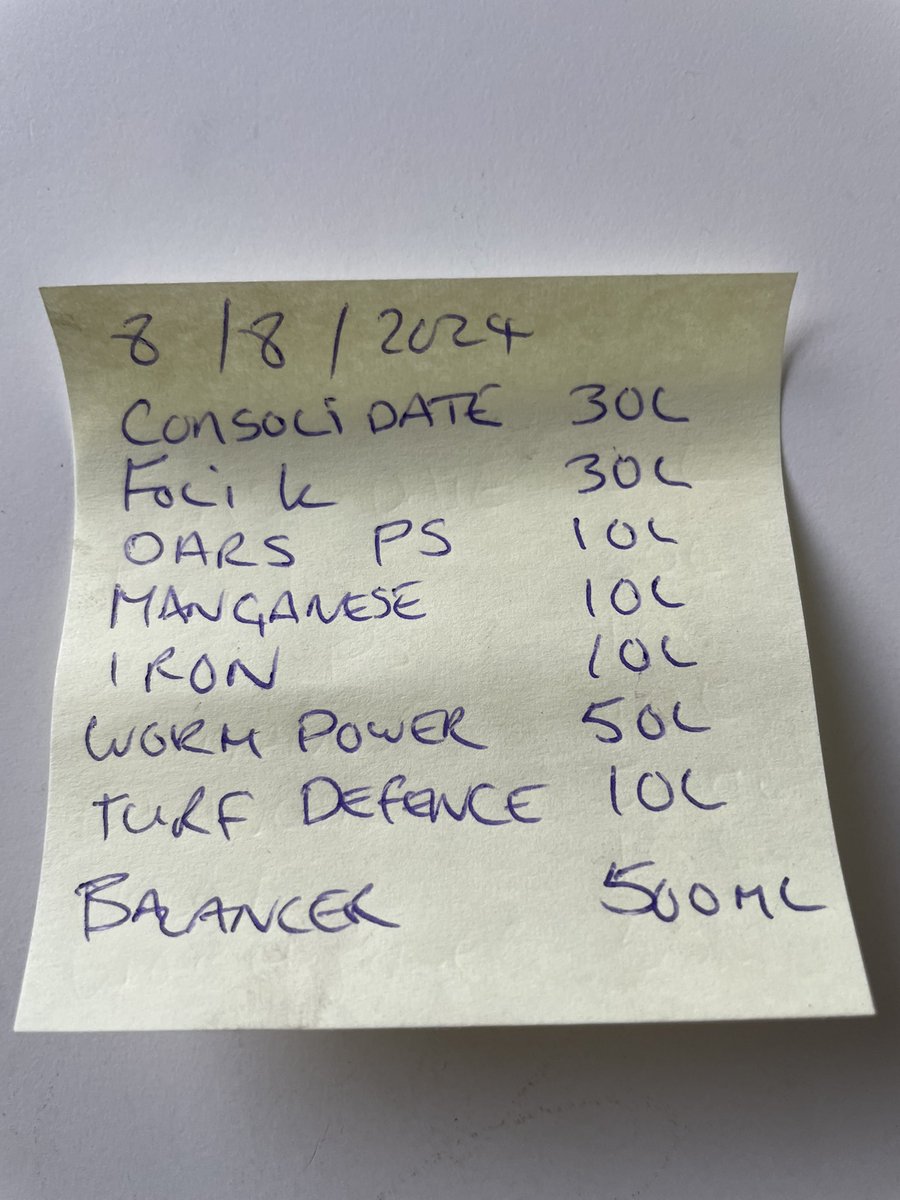 8/8/2024
CONSOLiDATE 30L
FOLi K 30L
OARS PS 10L
MANGANESE 10L
IRON 10L
WORM POWER 50L
TURF DEFENCE 10L
BALANCER 500ML